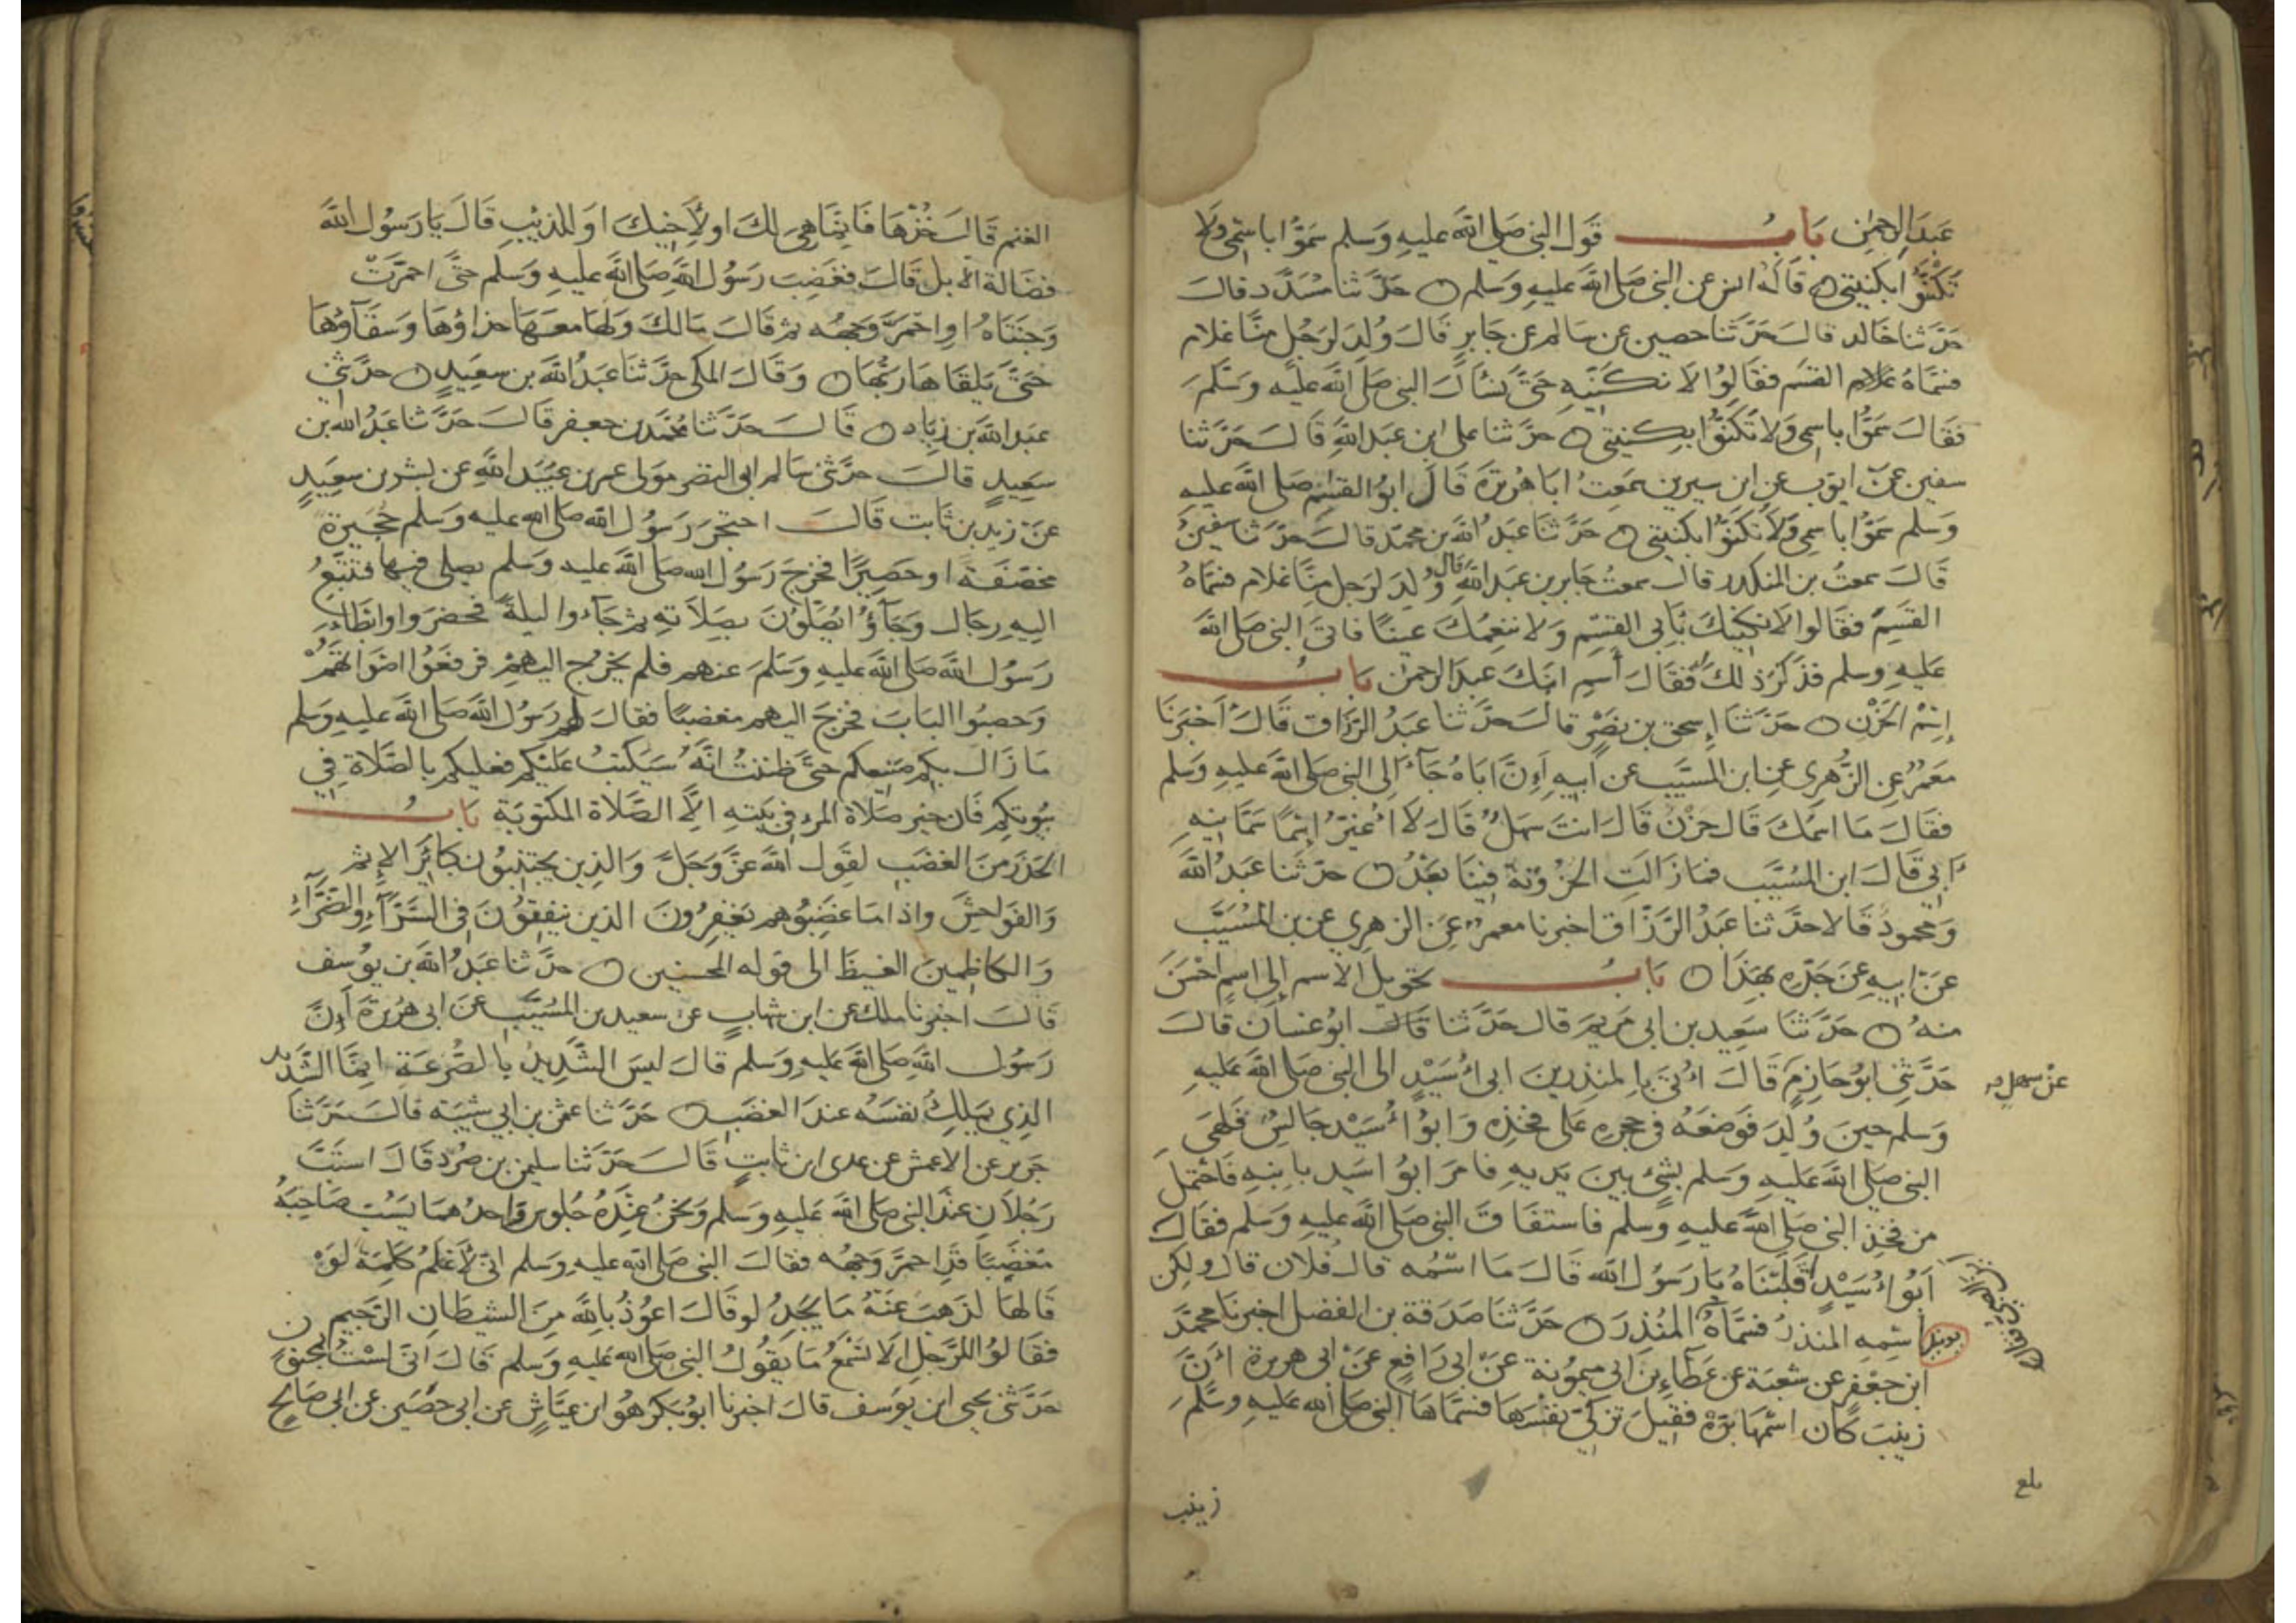 عَبْدَ الرحمٰن بَابُ قَول النبي صَلي الله عليهِ وَسلم سَمّوُا باسْمي وَلَا
تَكْتَنُوا بكنيتي قالَهُ انس عن النبي صَلي الله عليهِ وسلم حَدَّثنا مُسَدَّد قالَ
حَدَّثنا خَالد قالَ حَدَّثنا حصين عن سَالم عن جَابرٍ قَالَ وُلِدَ لرَجُل منَّا غلام
فسَمَّاهُ القسَم فقَالوُا لَا نكنِّيهِ حَتَّى نسْأل النبي صَلي الله عليهِ وسَلم
فقَالَ سَمّوُا باسمي وَلا تكَنَّوُا بكنيتي حدَّثنا على ابن عَبد اللهِ قَالَ حَدَّثنا
سفين عن ايوب عن ابن سيرين سَمعتُ ابَا هُريرَةَ قَالَ ابوُ القسِم صَلى الله عليهِ
وَسلم سَمّوُا باسمي وَلَا تكَنَّوُا بكنيتي حَدَّثنا عَبدُ الله بن محمّد قالَ حَدَّثنا سفينُ
قَالَ سمعتُ بن المنكدر قالَ سمعتُ جَابر بن عَبد اللهِ قال وُلِدَ لرَجل مِنَّا غلام فسَمَّاهُ
القسَمَ فقَالوا لَا نكنيكَ بأبي القسِم وَلا ننعِمُكَ عينًا فاتَى النبي صَلي الله
عَليهِ وسلم فذكرَ ذلكَ فقَالَ أَسمِ ابنكَ عبدَ الرحمٰن بَابُ
اسْم الحَزْن حَدَّثنَا إِسحق بن نصْرٍ قالَ حَدَّثنا عَبدُ الرَّزاق قَالَ أخبَرَنَا
مَعمَرٌ عن الزُّهرِي عن ابن المسَيَّب عن أبيهِ أَنَّ ابَاهُ جَآءَ الى النبي صَلي الله عليهِ وَسلم
فقَالَ مَا اسمُكَ قَالَ حزْن قَالَ انتَ سَهلٌ قَالَ لَا أُغيّرُ اسْمًا سَمَّانيهِ
أبي قَالَ ابن المُسَيَّب فمَا زَالَتِ الحُزوْنَة فينَا بَعْدُ حدّثَنا عَبدُ الله
وَمحمودٌ قَالا حدَّثنا عَبدُ الرَّزَّاق اخبرنا معمرٌ عِن الزهِري عن بن المُسَيَّب
عَنْ ابيهِ عَن جَدّهِ بهَذا بَابُ تحويل الاسم إِلي اسمٍ احْسَنَ
منهُ حَدَّثنَا سَعِيد بن ابي مَريَمَ قال حَدَّثنا قالَ ابوُ غسان قالَ
حَدَّثني ابوُ حَازِمٍ قَالَ أُتِيَ بالمنذِر بن ابي أُسَيْدٍ الى النبي صَلي الله عَليهِ
عَنْ سهلٍ
وَسلم حينَ وُلِدَ فوَضعَهُ فى حجرهِ عَلى فخذِه وَابوُ أُسَيْد جَالسٌ فَلَهَي
النبي صَلي الله عليهِ وسلم بشيءٍ بينَ يَديهِ فامَرَ ابوُ اسَيد بابنهِ فَاحْتُمِلَ
من فخذِ النبي صَلي الله عليهِ وسلم فاستفَاقَ النبي صَلي الله عليهِ وسَلم فقَالَ
ابَوُ أُسَيْدٍ قَلَبْنَاهُ يَا رَسُول الله قَالَ مَا اسْمُه قال فُلان قال وَلكن
أسْمِه المنذرُ فسَمَّاهُ المُنْذِرَ حَدَّثَنا صَدَقة بن الفضل اخبرنا محمَّد
ابن جَعْفرٍ عن شعبَة عن عَطَآءِ بن ابي ميمُونة عن ابي رَافعٍ عَنْ ابي هريرة أَنَّ
زينبَ كَان اسْمُهَا بَرَّةَ فقيلَ تزكّي نفْسَهَا فسَمَّاهَا النبي صَلي الله عَليهِ وسَلم
بلغ
زينب
الغنم قَالَ خُذْهَا فَانمَا هِيَ لكَ او لأَخيكَ اوَ للذيبِ قَالَ يَا رَسُول اللهِ
فضَالة الابل قَالَ فغَضِبَ رَسُول اللهِ صَلي اللهَ عليهِ وَسلم حتَّى احمَرَّتْ
وَجنتَاهُ اوِ احْمَرَّ وَجْهُه ثم قَالَ مَالكَ وَلهَا معَهَا حذاؤُهَا وَسقَآؤُهَا
حَتَّى يَلقَاهَا رَبُّهَا وَقَالَ المكي حَدَّثنَا عَبدُ اللهَ بن سَعِيدٍ حدَّثني
عبَد الله بن زيَادٍ قَالَ حَدَّثنا محمَّد بن جعفر قَالَ حَدَّثنا عَبدُ الله بن
سَعِيدٍ قالَ حدَّثني سَالم ابى النضر مولى عمر بن عبَيدِ اللهِ عن بسْر بن سعِيدٍ
عَنْ زيد بن ثَابت قَالَ احتجَرَ رَسُول الله صَلي الله عليه وَسلم حُجَيرَةً
مخصّفَةً او حَصِيرًا فخرجَ رَسُول الله صَلي الله عليه وسلم يصلى فيهَا فتتبَّعَ
اليهِ رجَال وَجَآؤُا يُصَلّوْنَ بصَلاتهِ ثم جَآءوا ليلةً فحضَروا وابطَاءَ
رَسُول الله صَلي الله عليهِ وَسَلمَ عنهم فلم يخرُج اليهمْ فرفعَوُا اصْوَاتَهُمْ
وَحصبُوا البَابَ فخرجَ اليهم مغضبًا فقالَ لهم رَسُول الله صَلي الله عليهِ وسَلم
مَا زَالَ بكم صَنيعكم حتَّى ظنَنتُ انّهُ سَيكتبُ عليْكم فعَليكم بالصَّلَاة في
بُيوتكم فَان خير صَلَاة المرءِ فى بيْتهِ الّا الصَّلَاة المكتوبَة بَابُ
الحَذَر مِن الغضَبِ لقوِل اللهِ عَزَّ وَجَلَّ وَالذين يجتنبوُن كَبائرَ الإثم
وَالفوَاحِشَ واذا مَا غضِبُوُا هم يغفِرُونَ الذين ينفِقوُنَ في السَّرَّآءِ وَالضَّرَّآءِ
وَالكَاظِمينَ الغيظَ الى قوله المحسنين حدَّثنا عَبدُ الله بن يوُسف
قَالَ اخبرنا ملك عن ابن شهابٍ عن سعيد بن المُسَيَّب عن ابي هُرَيرَة أَنَّ
رَسُول اللهِ صَلي الله عَليهِ وسلم قالَ ليسَ الشَّدِيدُ بالصُّرَعَةِ انمَا الشَّدِيد
الذِي يَملكُ نفسَه عندَ الغضَبِ حَدَّثنا عثمٰن بن ابي شيْبَة قالَ حَدَّثنا
جَرير عن الاعمش عن عدى ابن ثابتٍ قَالَ حَدَّثنا سليمٰن بن صُرَد قَالَ استَبَّ
رَجُلاَن عنْدَ النبي صَلي الله عَليهِ وَسلم وَنحنُ عِنْدَهُ جُلوس وَاحدُهمَا يَسُبّ صَاحبَهُ
مغضَبًا قد احمَرَّ وَجهُه فقَالَ النبي صَلي الله عليهِ وَسلم انّى لأَعْلمُ كَلِمَة لَوْ
قَالهَا لذهبَ عَنْهُ مَا يَجِدُ لو قَالَ اعوُذُ باللهِ مِنَ الشيطَان الرَّجيم
فقَالوُا للرَّجل أَلَا تسْمَعُ مَا يَقوُلُ النبي صَلي الله عَليهِ وسَلم قَالَ انّى لسْتُ بمجنوُنٍ
حَدَّثنى يحيى ابن يوُسف قالَ اخبرنا ابوُ بكر هوُ ابن عَيَّاشٍ عن ابي حَصَين عن ابي صَالحٍ